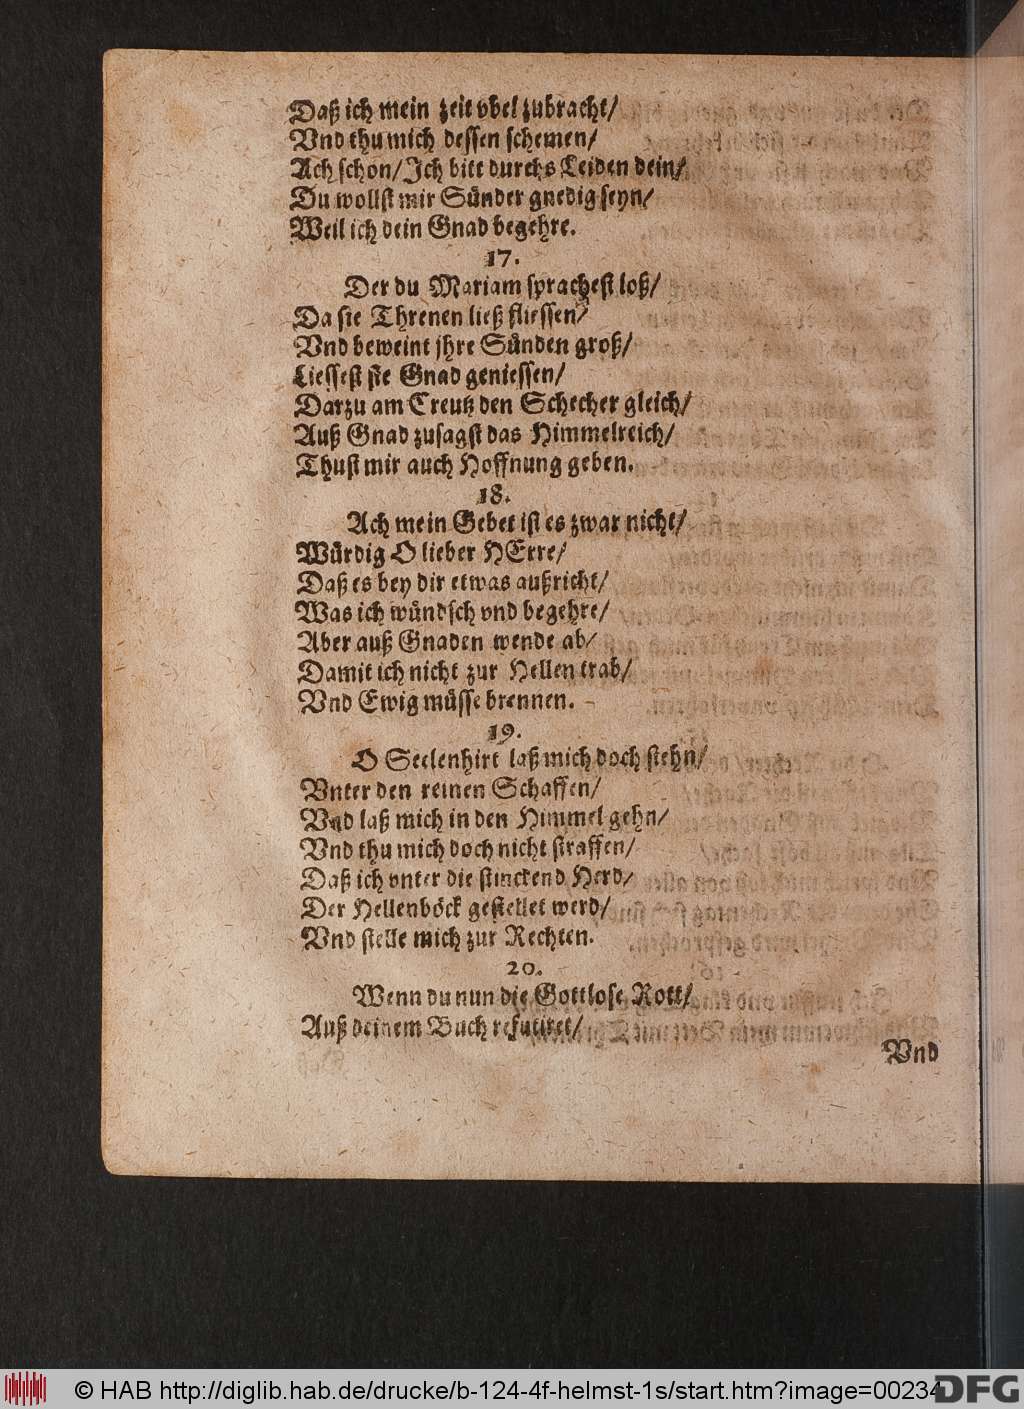 Daß ich mein zeit vbel zubracht/
Vnd thu mich dessen schemen/
Ach schon/ Ich bitt durchs Leiden dein/
Du wollst mir Sünder gnedig seyn/
Weil ich dein Gnad begehre.
17.
Der du Mariam sprachest loß/
Da sie Threnen ließ fliessen/
Vnd beweint jhre Sünden groß/
Liessest sie Gnad geniessen/
Darzu am Creutz den Schecher gleich/
Auß Gnad zusagst das Himmelreich/
Thust mir auch Hoffnung geben.
18.
Ach mein Gebet ist es zwar nicht/
Würdig O lieber HErre/
Daß es bey dir etwas außricht/
Was ich wündsch vnd begehre/
Aber auß Gnaden wende ab/
Damit ich nicht zur Hellen trab/
Vnd Ewig müsse brennen.
19.
O Seelenhirt laß mich doch stehn/
Vnter den reinen Schaffen/
Vnd laß mich in den Himmel gehn/
Vnd thu mich doch nicht straffen/
Daß ich vnter die stinckend Herd/
Der Hellenböck gestellet werd/
Vnd stelle mich zur Rechten.
20.
Wenn du nun die Gottlose Rott/
Auß deinem Buch refutiret/
Vnd
© HAB http://diglib.hab.de/drucke/b-124-4f-helmst-1s/start.htm?image=00234
DFG